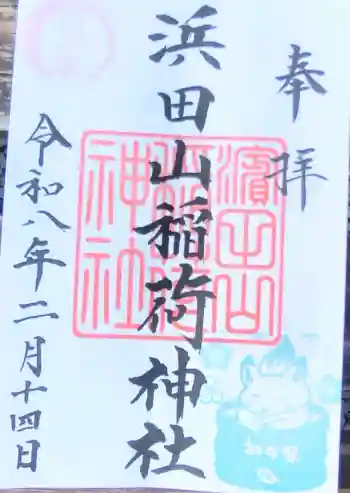 奉拝
浜田山稲荷神社
濱田山稲荷神社
令和八年二月十四日